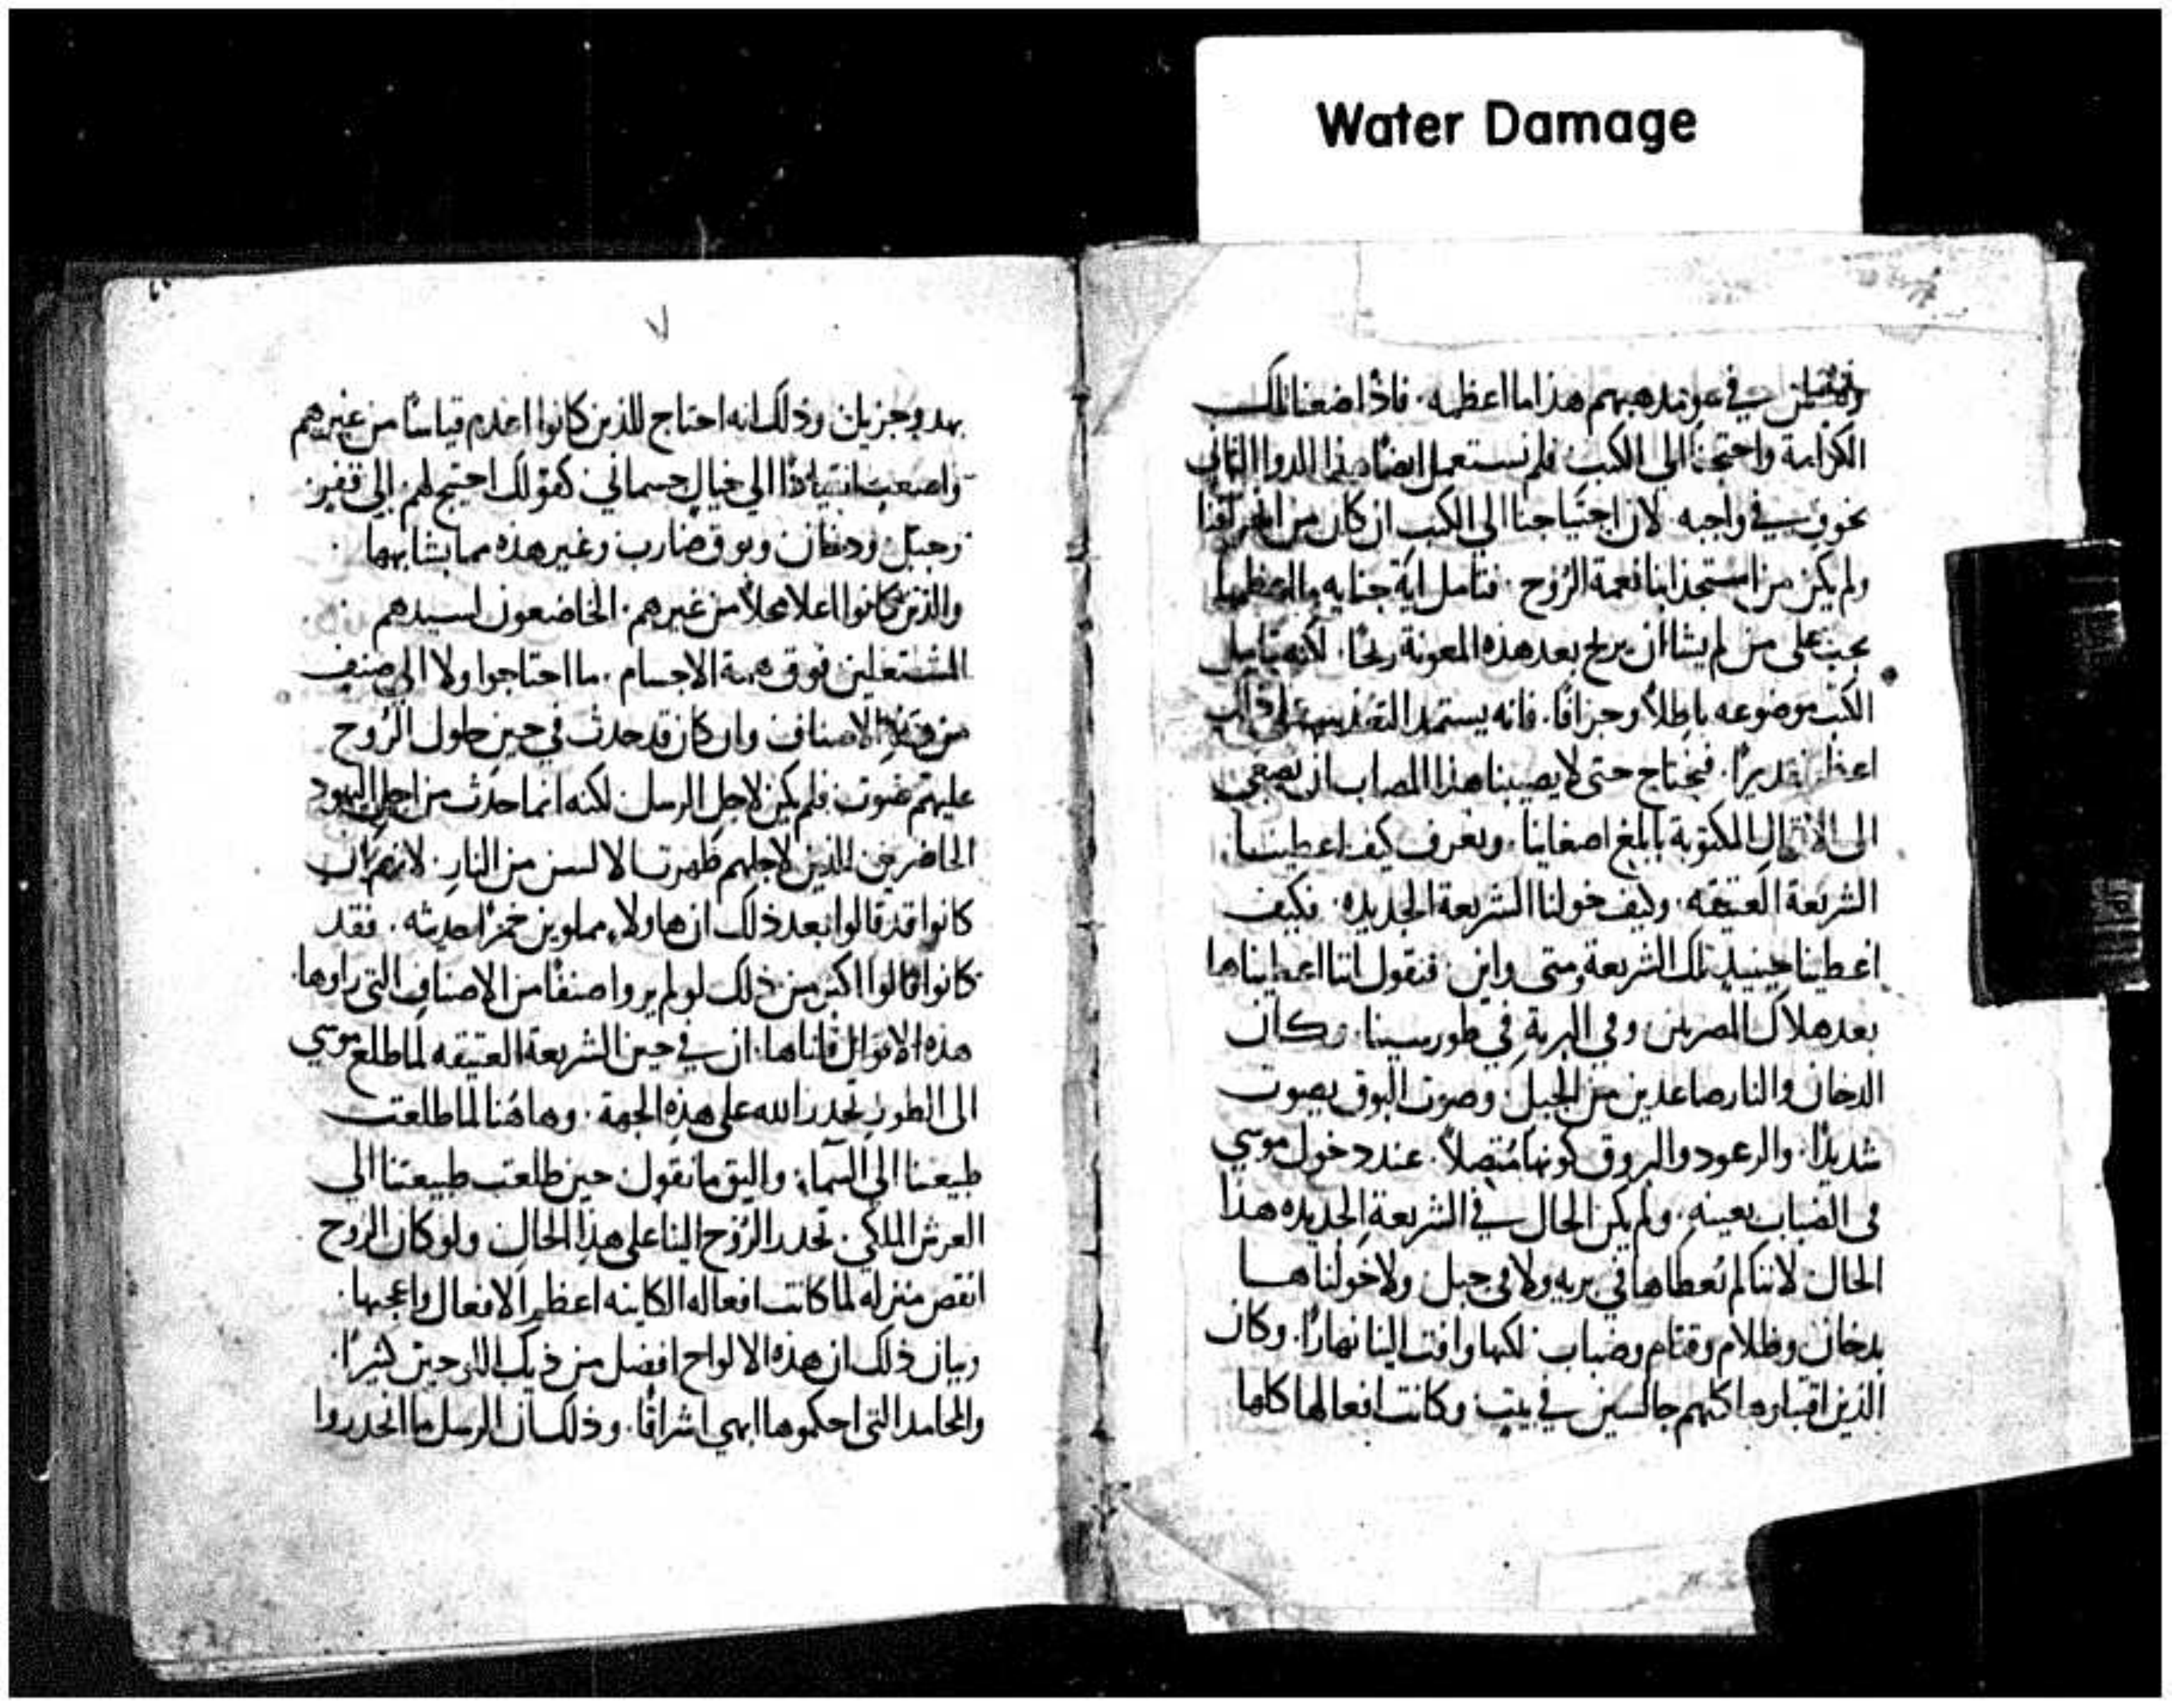 Water Damage
في عو مذهبهم هذا ما اعظمه. فاذ اضعنا تلك
الكرامة واحتجنا الى الكتب فلم نستعمل ايضًا هذا الدوا الثاني
نحوي في واجبه لان احتياجنا الى الكتب ان كان من
ولم يكن من استجذابنا نعمة الروح. فتامل اية جنايه
يجب على من لم يشا ان يربح بعد هذه المعونة ربحًا. لكنه يتامل
الكتب موضوعه باطلاً وجزافًا. فانه يستمد التعذيب على ذلك
اعظم تقديرًا. فنحتاج حتى لا يصيبنا هذا المصاب ان نصغي
الى الاقوال المكتوبة بابلغ اصغاينا. ونعرف كيف اعطينا
الشريعة العتيقه. وكيف خولنا الشريعة الجديده. فكيف
اعطينا حينيذٍ تلك الشريعة ومتى واين. فنقول اننا اعطيناها
بعد هلاك المصريين وفي البرية في طور سينا. وكان
الدخان والنار صاعدين من الجبل. وصوت البوق يصوت
شديدًا. والرعود والبروق كونها متصلاً. عند دخول موسي
في الضباب بعينه. ولم يكن الحال في الشريعة الجديده هذا
الحال لاننا لم نعطاها في بريه ولا في جبل ولا خولناها
بدخان وظلام وقتام وضباب لكنها وافت الينا نهارًا. وكان
الذين اقتبلوها كلهم جالسين في بيت وكانت افعالها كلها
٧
بهدو جزيل وذلك انه احتاج للذين كانوا اعدم قياسًا من غيرهم
واصعب انقيادًا الى خيال جسماني. كقولك احتيج لهم الى قفر
وجبل ودخان وبوق ضارب وغير هذه مما يشابهها
والذين كانوا اعلا محلاً من غيرهم. الخاضعون لسيدهم
المشتعلين فوق همة الاجسام. ما احتاجوا ولا الى صنف
من هذه الاصناف وان كان قد حدث في حين حلول الروح
عليهم صوت فلم يكن لاجل الرسل لكنه انما حدث من اجل اليهود
الحاضرين الذين لاجلهم ظهرت الالسن من النار. لانهم ان
كانوا قد قالوا بعد ذلك ان هاولاء مملوين خمرًا حديثه. فقد
كانوا قالوا اكثر من ذلك لو لم يروا صنفًا من الاصناف التي راوها.
هذه الاقوال قلناها. ان في حين الشريعة العتيقه لما طلع موسي
الى الطور تحدر الله على هذه الجهة. وهاهنا لما طلعت
طبيعتنا الى السماء واليق ما نقول حين طلعت طبيعتنا الى
العرش الملكي. تحدر الروح الينا على هذا الحال ولو كان الروح
انقص منزله لما كانت افعاله الكاينه اعظم الافعال واعجبها.
وبيان ذلك ان هذه الالواح افضل من ذيك اللوحين كثيرًا.
والمحامد التي احكموها ابهي اشراقًا. وذلك ان الرسل ما انحدروا